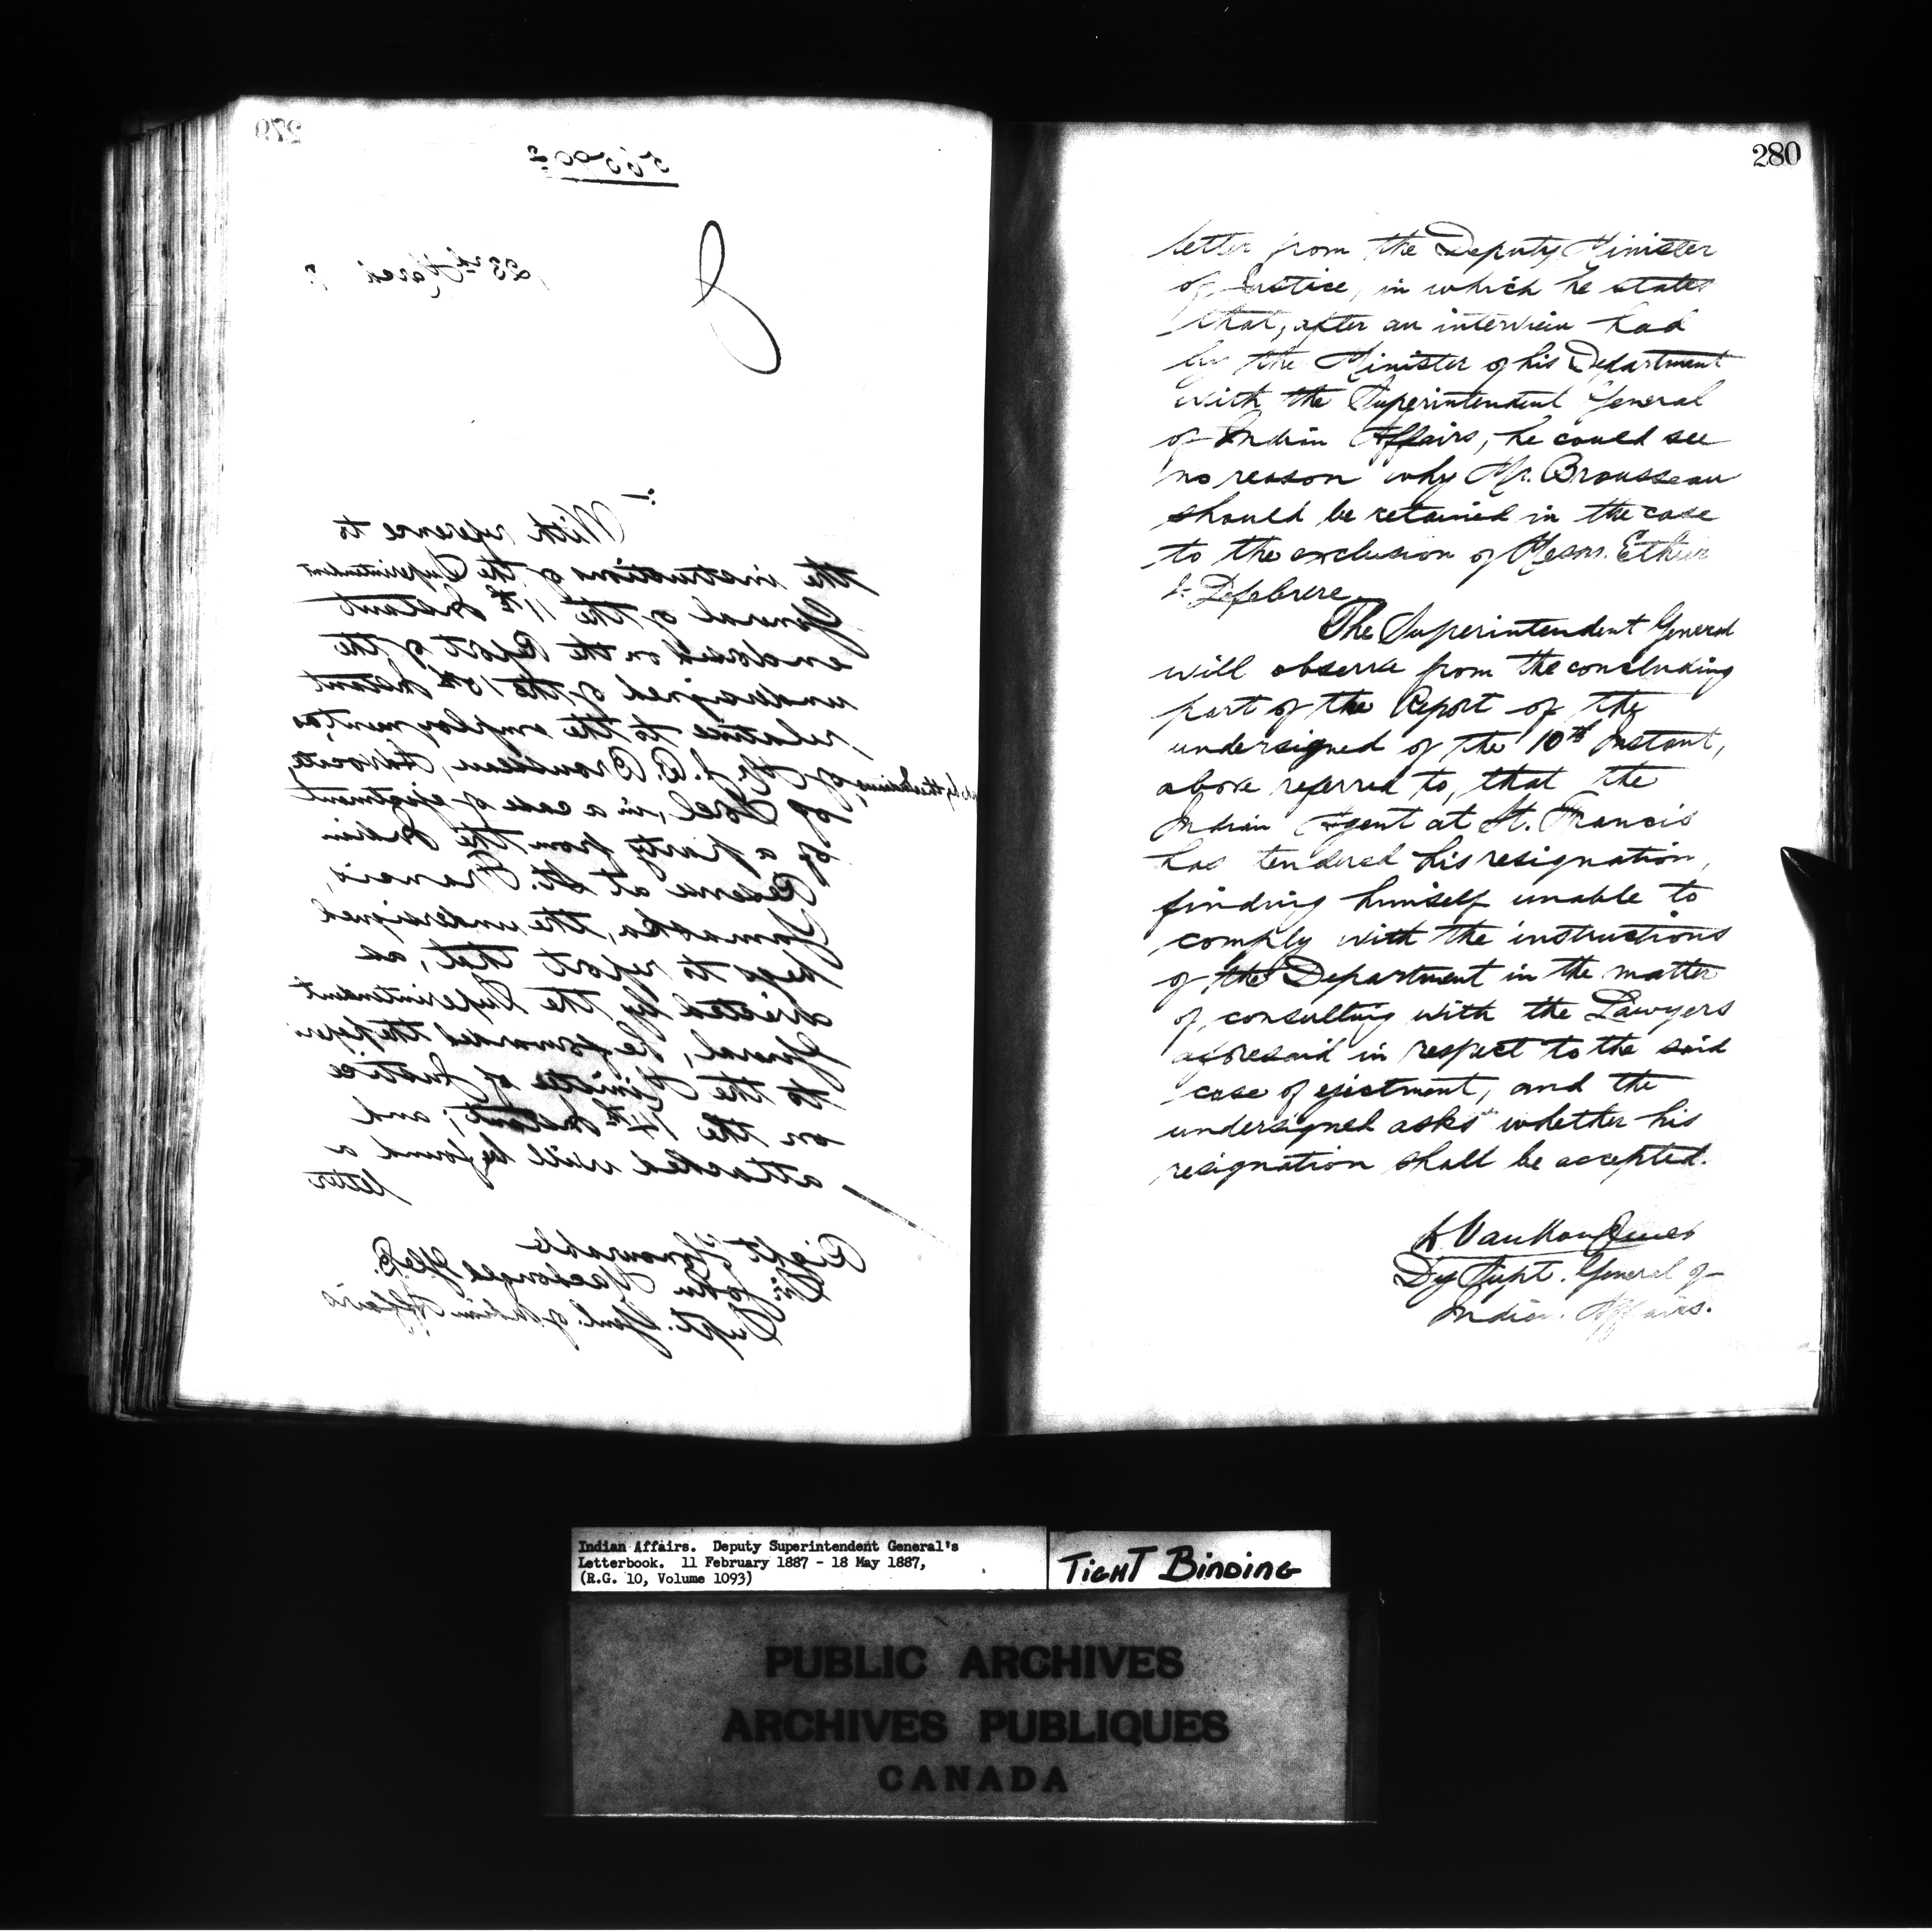 279
23rd March 7.
:-
With reference to
the instructions of the Superintendent
General of the 11th Instant
endorsed on the Report of the
undersigned of the 10th Instant
relative to the employment, as
by the Indians, of Mr. J. B. Brousseau, Advocate,
of Sorel, in a case of ejectment
of a party from the Indian
Reserve at St. Francis,
Yamaska, the undersigned
begs to report that, as
directed by the Superintendent
General, he forwarded the papers
to the Minister of Justice
on the 14th Instant; and
attached will be found a
letter
Right Honourable
Sir John Macdonald G.C.B.
Supt. Genl. of Indian Affairs
280
letter from the Deputy Minister
of Justice, in which he states
that, after an interview had
by the Minister of his Department
with the Superintendent General
of Indian Affairs, he could see
no reason why Mr. Brousseau
should be retained in the case
to the exclusion of Messrs. Ethier
& Lefebvre.
The Superintendent General
will observe from the concluding
part of the Report of the
undersigned of the 10th Instant,
above referred to, that the
Indian Agent at St. Francis
has tendered his resignation,
finding himself unable to
comply with the instructions
of the Department in the matter
of consulting with the Lawyers
aforesaid in respect to the said
case of ejectment, and the
undersigned asks whether his
resignation shall be accepted.
L VanKoughnet
Dy Supt. General of
Indian Affairs.
Indian Affairs. Deputy Superintendent General's
Letterbook. 11 February 1887 - 18 May 1887,
(R.G. 10, Volume 1093)
TIGHT BINDING
PUBLIC ARCHIVES
ARCHIVES PUBLIQUES
CANADA